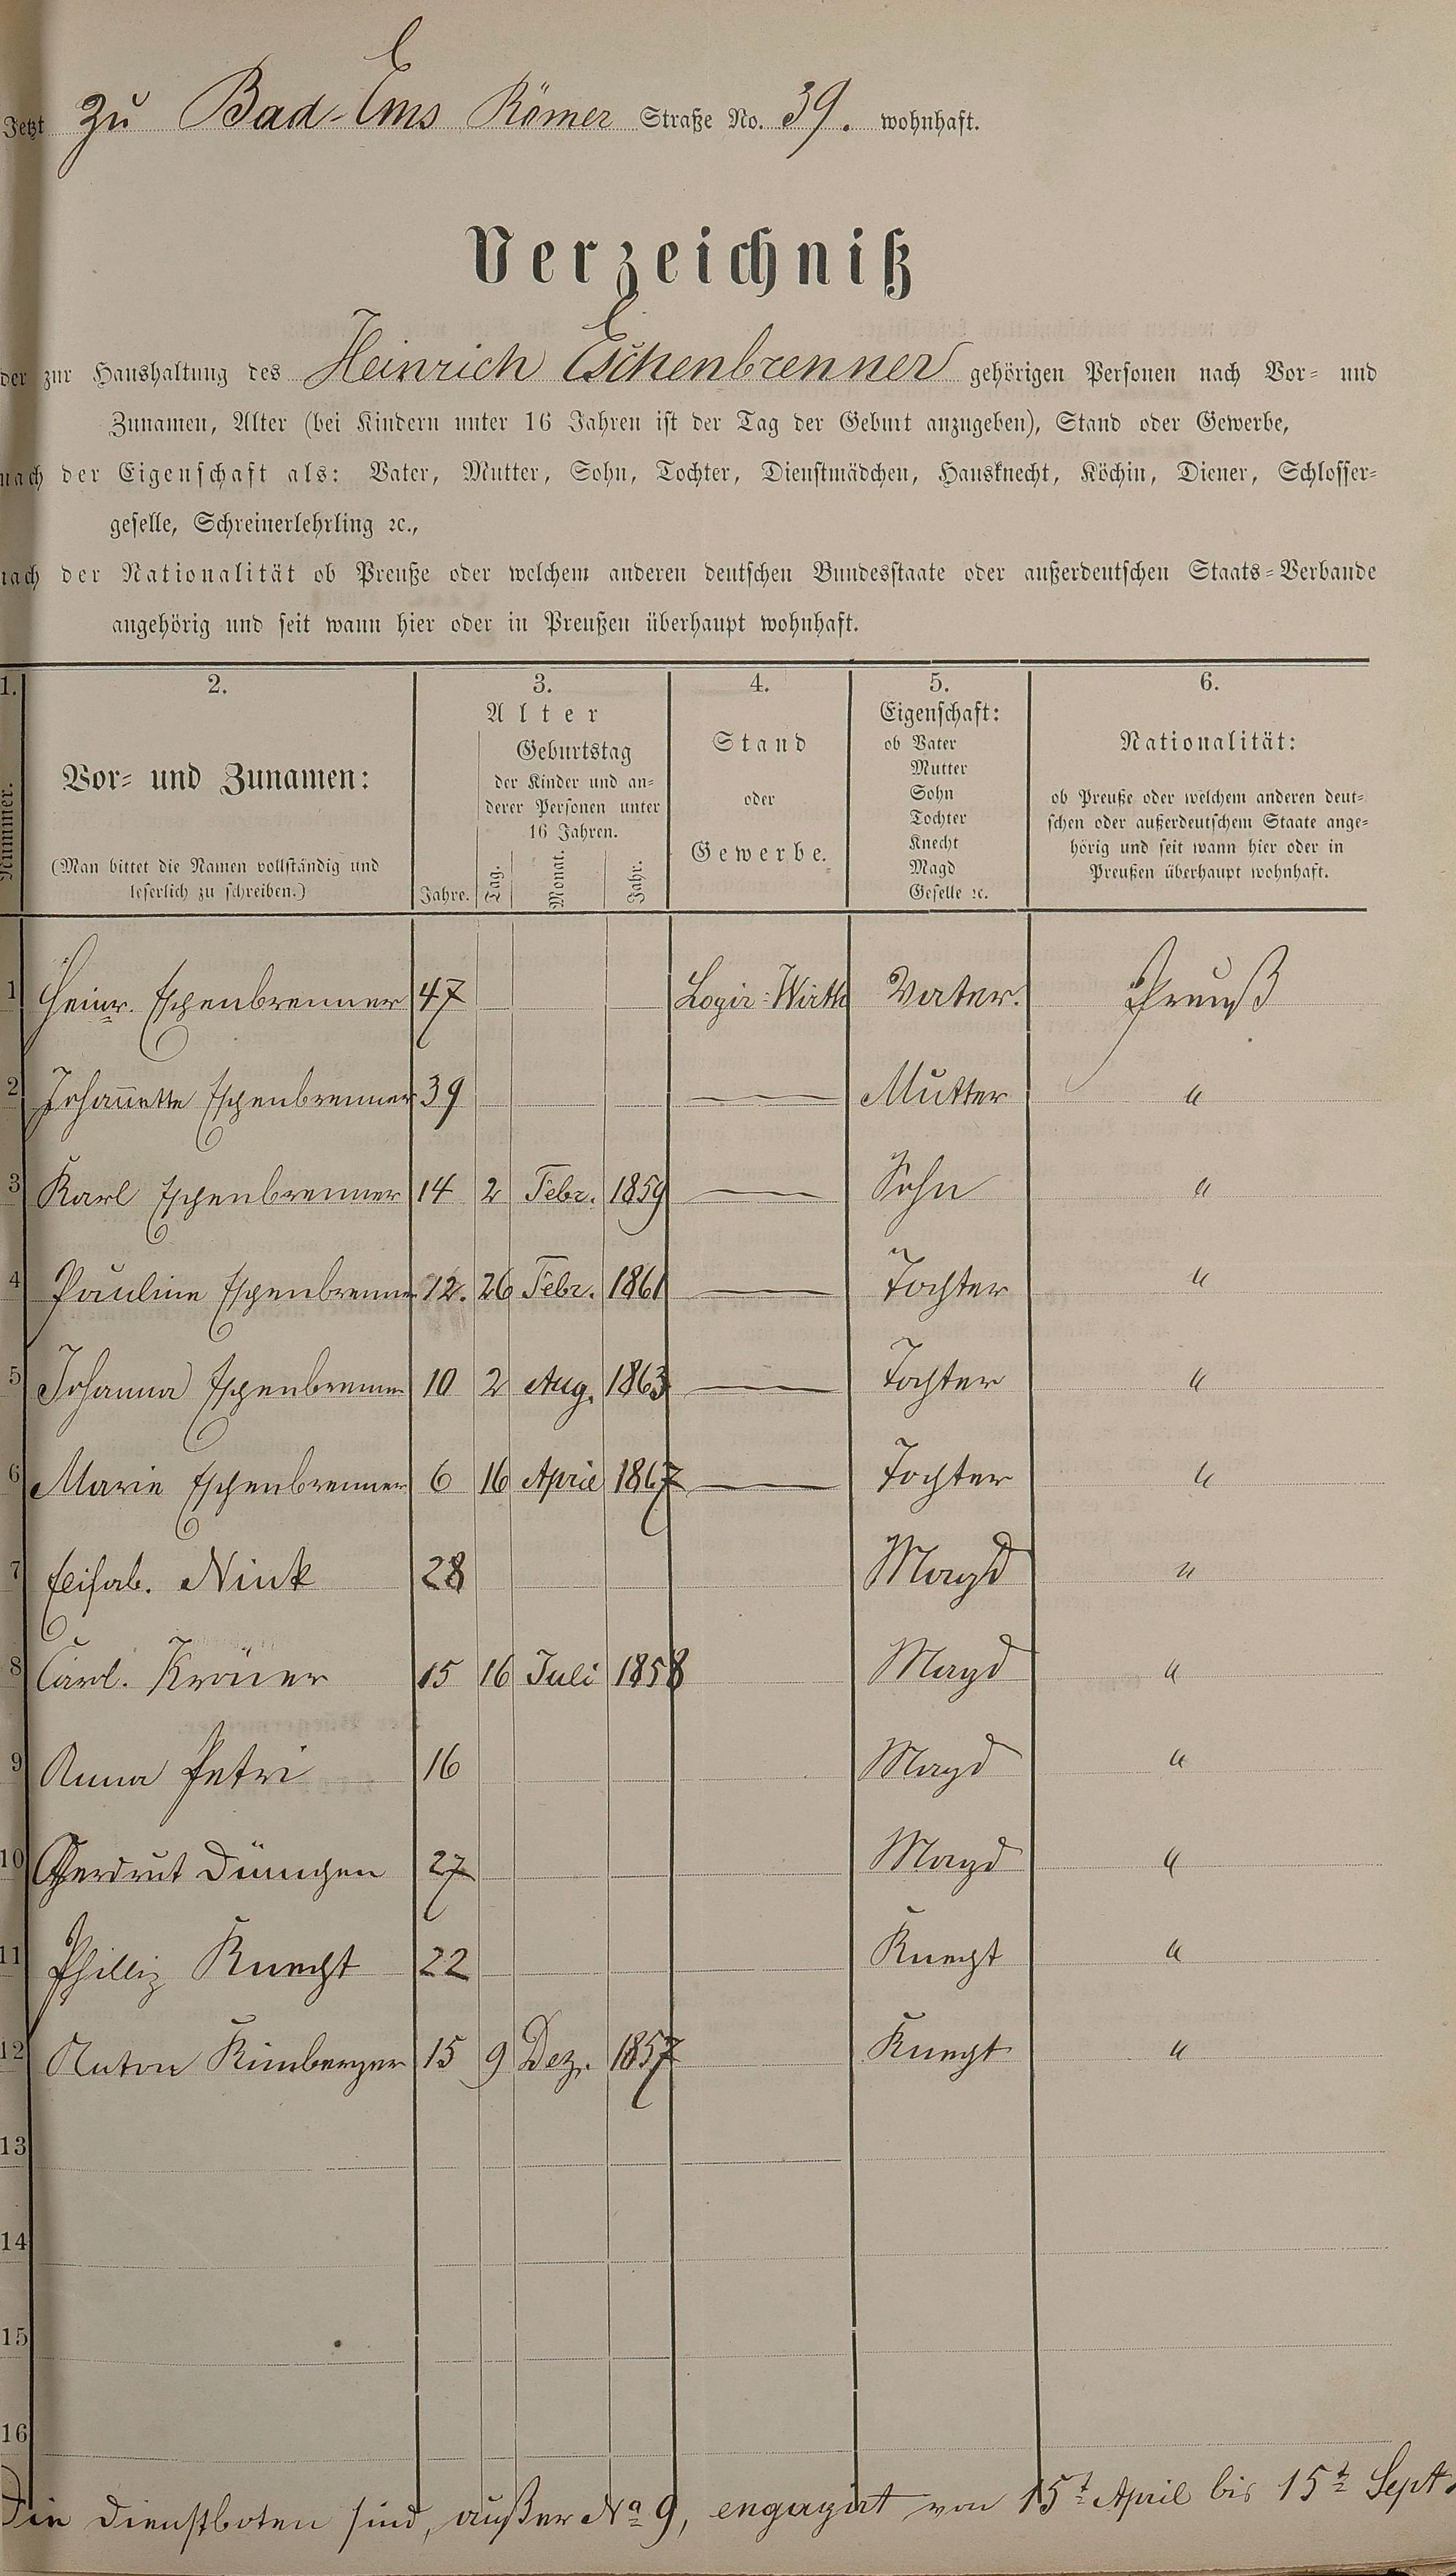 Jetzt zu Bad-Ems Römer Straße No. 39. wohnhaft.
Verzeichniß
der zur Haushaltung des Heinrich Eschenbrenner gehörigen Personen nach Vor- und
Zunamen, Alter (bei Kindern unter 16 Jahren ist der Tag der Geburt anzugeben), Stand oder Gewerbe,
nach der Eigenschaft als: Vater, Mutter, Sohn, Tochter, Dienstmädchen, Hausknecht, Köchin, Diener, Schlosser-
geselle, Schreinerlehrling ꝛc.,
nach der Nationalität ob Preuße oder welchem anderen deutschen Bundesstaate oder außerdeutschen Staats-Verbande
angehörig und seit wann hier oder in Preußen überhaupt wohnhaft.
1. 2. 3. 4. 5. 6.
Nummer.
Vor- und Zunamen:
(Man bittet die Namen vollständig und
leserlich zu schreiben.)
Alter
Jahre.
Geburtstag
der Kinder und an-
derer Personen unter
16 Jahren.
Tag. Monat. Jahr.
Stand
oder
Gewerbe.
Eigenschaft:
ob Vater
Mutter
Sohn
Tochter
Knecht
Magd
Geselle ꝛc.
Nationalität:
ob Preuße oder welchem anderen deut-
schen oder außerdeutschem Staate ange-
hörig und seit wann hier oder in
Preußen überhaupt wohnhaft.
1 Heinr. Eschenbrenner 47 Logir-Wirth Vater. Preuß
2 Johannette Eschenbrenner 39 — Mutter "
3 Karl Eschenbrenner 14 2 Febr. 1859 — Sohn "
4 Pauline Eschenbrenner 12. 26 Febr. 1861 — Tochter "
5 Johanna Eschenbrenner 10 2 Aug. 1863 — Tochter "
6 Marie Eschenbrenner 6 16 April 1867 — Tochter "
7 Elisab. Nink 28 Magd "
8 Carl. 15 16 Juli 1858 Magd "
9 Anna Petri 16 Magd "
10 Gerdrut Düngen 27 Magd "
11 Phillip Knecht 22 Knecht "
12 Anton Kimberger 15 9 Dez. 1857 Knegt "
13
14
15
16
Die Dienstboten sind, außer No 9, engagirt von 15t April bis 15t Sept.